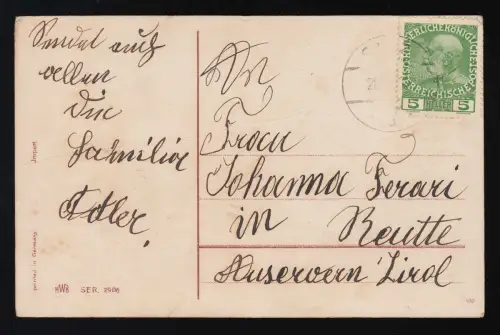 Sendet euch
allen
die
Familie
Adler,
An
Frau
Johanna Ferari
in
Reutte
Tirol
KAISERLICHE KÖNIGLICHE
ÖSTERREICHISCHE POST
5 HELLER 5
Import
printed in Germany
HWB SER. 2506